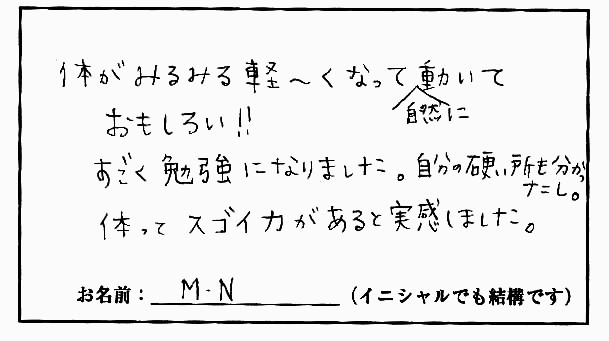 体がみるみる軽〜くなって自然に動いて
おもしろい!!
すごく勉強になりました。自分の硬い所も分かったし。
体ってスゴイ力があると実感しました。
お名前：M・N（イニシャルでも結構です）